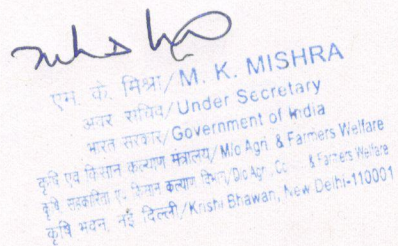 एम. के. मिश्रा/M. K. MISHRA
अवर सचिव/Under Secretary
भारत सरकार/Government of India
कृषि एवं किसान कल्याण मंत्रालय/M/o Agri. & Farmers Welfare
कृषि सहकारिता एवं किसान कल्याण विभाग/D/o Agr., Co & Farmers Welfare
कृषि भवन, नई दिल्ली/Krishi Bhawan, New Delhi-110001